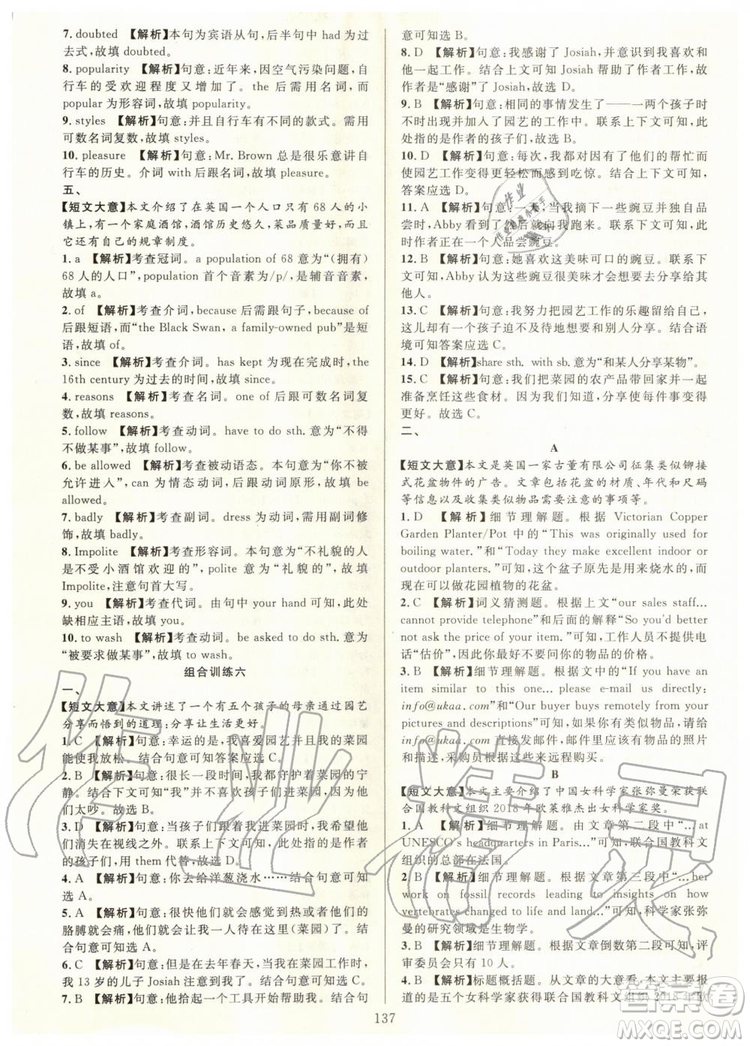 7. doubted 【解析】本句为宾语从句，后半句中 had 为过
去式，故填 doubted。
8. popularity 【解析】句意：近年来，因空气污染问题，自
行车的受欢迎程度又增加了。the 后需用名词，而
popular 为形容词，故填 popularity。
9. styles 【解析】句意：并且自行车有不同的款式。需用
可数名词复数，故填 styles。
10. pleasure 【解析】句意：Mr. Brown 总是很乐意讲自
行车的历史。介词 with 后跟名词，故填 pleasure。
五、
【短文大意】本文介绍了在英国一个人口只有 68 人的小
镇上，有一个家庭酒馆，酒馆历史悠久，菜品质量高。它
有着自己的规章制度。
1. a 【解析】考查冠词。a population of 68 意为“（拥有）
68 人的人口”，population 首个音素为/p/，是辅音音素，
故填 a。
2. of 【解析】考查介词，because 后需跟句子，because of
后跟短语，而“the Black Swan, a family-owned pub”是短
语，故填 of。
3. since 【解析】考查介词。has kept 为现在完成时，the
16th century 为过去的时间，故填 since。
4. reasons 【解析】考查名词。one of 后跟可数名词复
数，故填 reasons。
5. follow 【解析】考查动词。have to do sth. 意为“不得
不做某事”，故填 follow。
6. be allowed 【解析】考查被动语态。本句意为“你不被
允许进入”，can 为情态动词，后跟动词原形，故填 be
allowed。
7. badly 【解析】考查副词。dress 为动词，需用副词修
饰，故填 badly。
8. Impolite 【解析】考查形容词。本句意为“不礼貌的人
是不受小酒馆欢迎的”，polite 意为“礼貌的”，故填
Impolite，注意句首首字母大写。
9. you 【解析】考查代词。由句中 your hand 可知，此处
缺相应主语，故填 you。
10. to wash 【解析】考查动词。be asked to do sth. 意为
“被要求做某事”，故填 to wash。
组合训练六
一、
【短文大意】本文讲述了一个有五个孩子的母亲通过园艺
分享而悟到的道理：分享让生活更美好。
1. C 【解析】句意：幸运的是，我喜爱园艺并且我的菜园
能使我放松。结合句意可知答案应选 C。
2. B 【解析】句意：很长一段时间，我都享受着菜园的宁
静。结合下文可知“我”不让孩子们进菜园，因为他
们太吵。故选 B。
3. D 【解析】句意：如果他们跟着我进菜园，我就给他
们
们消失在视线之外。联系上文可知此处指代前面
的孩子们，用 them 代替，故选 D。
4. A 【解析】句意：你去给洋葱浇水……结合句意可知
选 A。
5. A 【解析】句意：他们很快就会感觉到热或者他们的
胳膊就会痛。结合句意可知选 A。
6. C 【解析】句意：但是在去年春天，当我在菜园时，
我 13 岁的儿子 Josiah 来到了这里（菜园）。故选 C。
7. B 【解析】句意：他拾起一个工具开始帮助我。故句
137
意可知选 B。
8. D 【解析】句意：我感谢了 Josiah，并告诉他我喜欢和
他一起工作。结合上文可知 Josiah 帮助了作者工作，故
作者“感谢”了 Josiah，故选 D。
9. B 【解析】句意：相同的事情发生了——一个孩子不
时不时出现并加入了园艺的工作中。联系上下文可知，
此处指的是作者的孩子们，故选 B。
10. D 【解析】句意：每次，我都对他们的帮助以及他们
使园艺工作变得更轻松而感到吃惊。联系下文可知，
答案应选 D。
11. A 【解析】句意：一天，当我摘下一些豌豆并独自品
尝时，Abby 看到了并向我跑来。联系下文可知，此
时作者正在一个人品尝豌豆。故选 A。
12. B 【解析】句意：她喜欢这美味可口的豌豆。联系
下文可知，Abby 因为觉得豌豆味美才想去分享给其
他人。
13. C 【解析】句意：我努力把园艺工作的乐趣留给自己，
这儿却有一个孩子迫不及待想要和别人分享。结合语
境可知答案应选 C。
14. D 【解析】share sth. with sb. 意为“和某人分享某物”。
15. C 【解析】句意：我们把菜园的农产品带回家并一起
准备烹饪这些食材。联系上下文可知，分享使每件事变
得更好了。故选 C。
二、
A
【短文大意】本文是英国一家古董有限公司征集类似铆接
式花盆物件的广告。文章包括花盆的产地、年代、尺码
等信息以及出售类似物件的注意的事项等。
1. D 【解析】细节理解题。根据 Victorian Copper
Garden Planter/Pot 中的“This was originally used for
boiling water.”和“Today they make excellent indoor or
outdoor planters.”可知，这个盆子原先是用来烧水的，而
现在可以用来做花园植物的花盆。
2. C 【解析】词义猜测题。根据上文“our sales staff…
cannot price telephone”和后面的解释“So you'd better
not ask the price of your item.”可知，工作人员不能在
电话中“估价”，因此你最好不要问你的物品的价格。
3. B 【解析】细节理解题。根据文中的“If you have an
item similar to this to sell please e-mail us directly:
info@ukaa.com”和“Our buyer buys remotely from your
pictures and descriptions”可知，如果有类似的物品，请给
info@ukaa.com 直接发邮件，邮件里面要有物品的图片
和描述，采购员根据这些来远程购买。
B
【短文大意】本文主要介绍了中国女科学家张弥曼荣获联
合国教科文组织 2018 年欧莱雅杰出女科学家奖。
1. C 【解析】细节理解题。由文章第二段中“…at
UNESCO's headquarters in Paris…”可知，联合国教科文
组织的总部在法国。
2. C 【解析】细节理解题。由文章第三段中“…her
work on fossil records leading to insights on how
vertebrates changed to live on land…”可知，科学家张弥
曼的研究领域是生物学。
3. B 【解析】细节理解题。根据文章倒数第二段可知，评
审委员会只有 10 人。
4. B 【解析】标题概括题。从文章的大意看，本文主要
是五个女科学家获得联合国教科文组织 2018 年欧